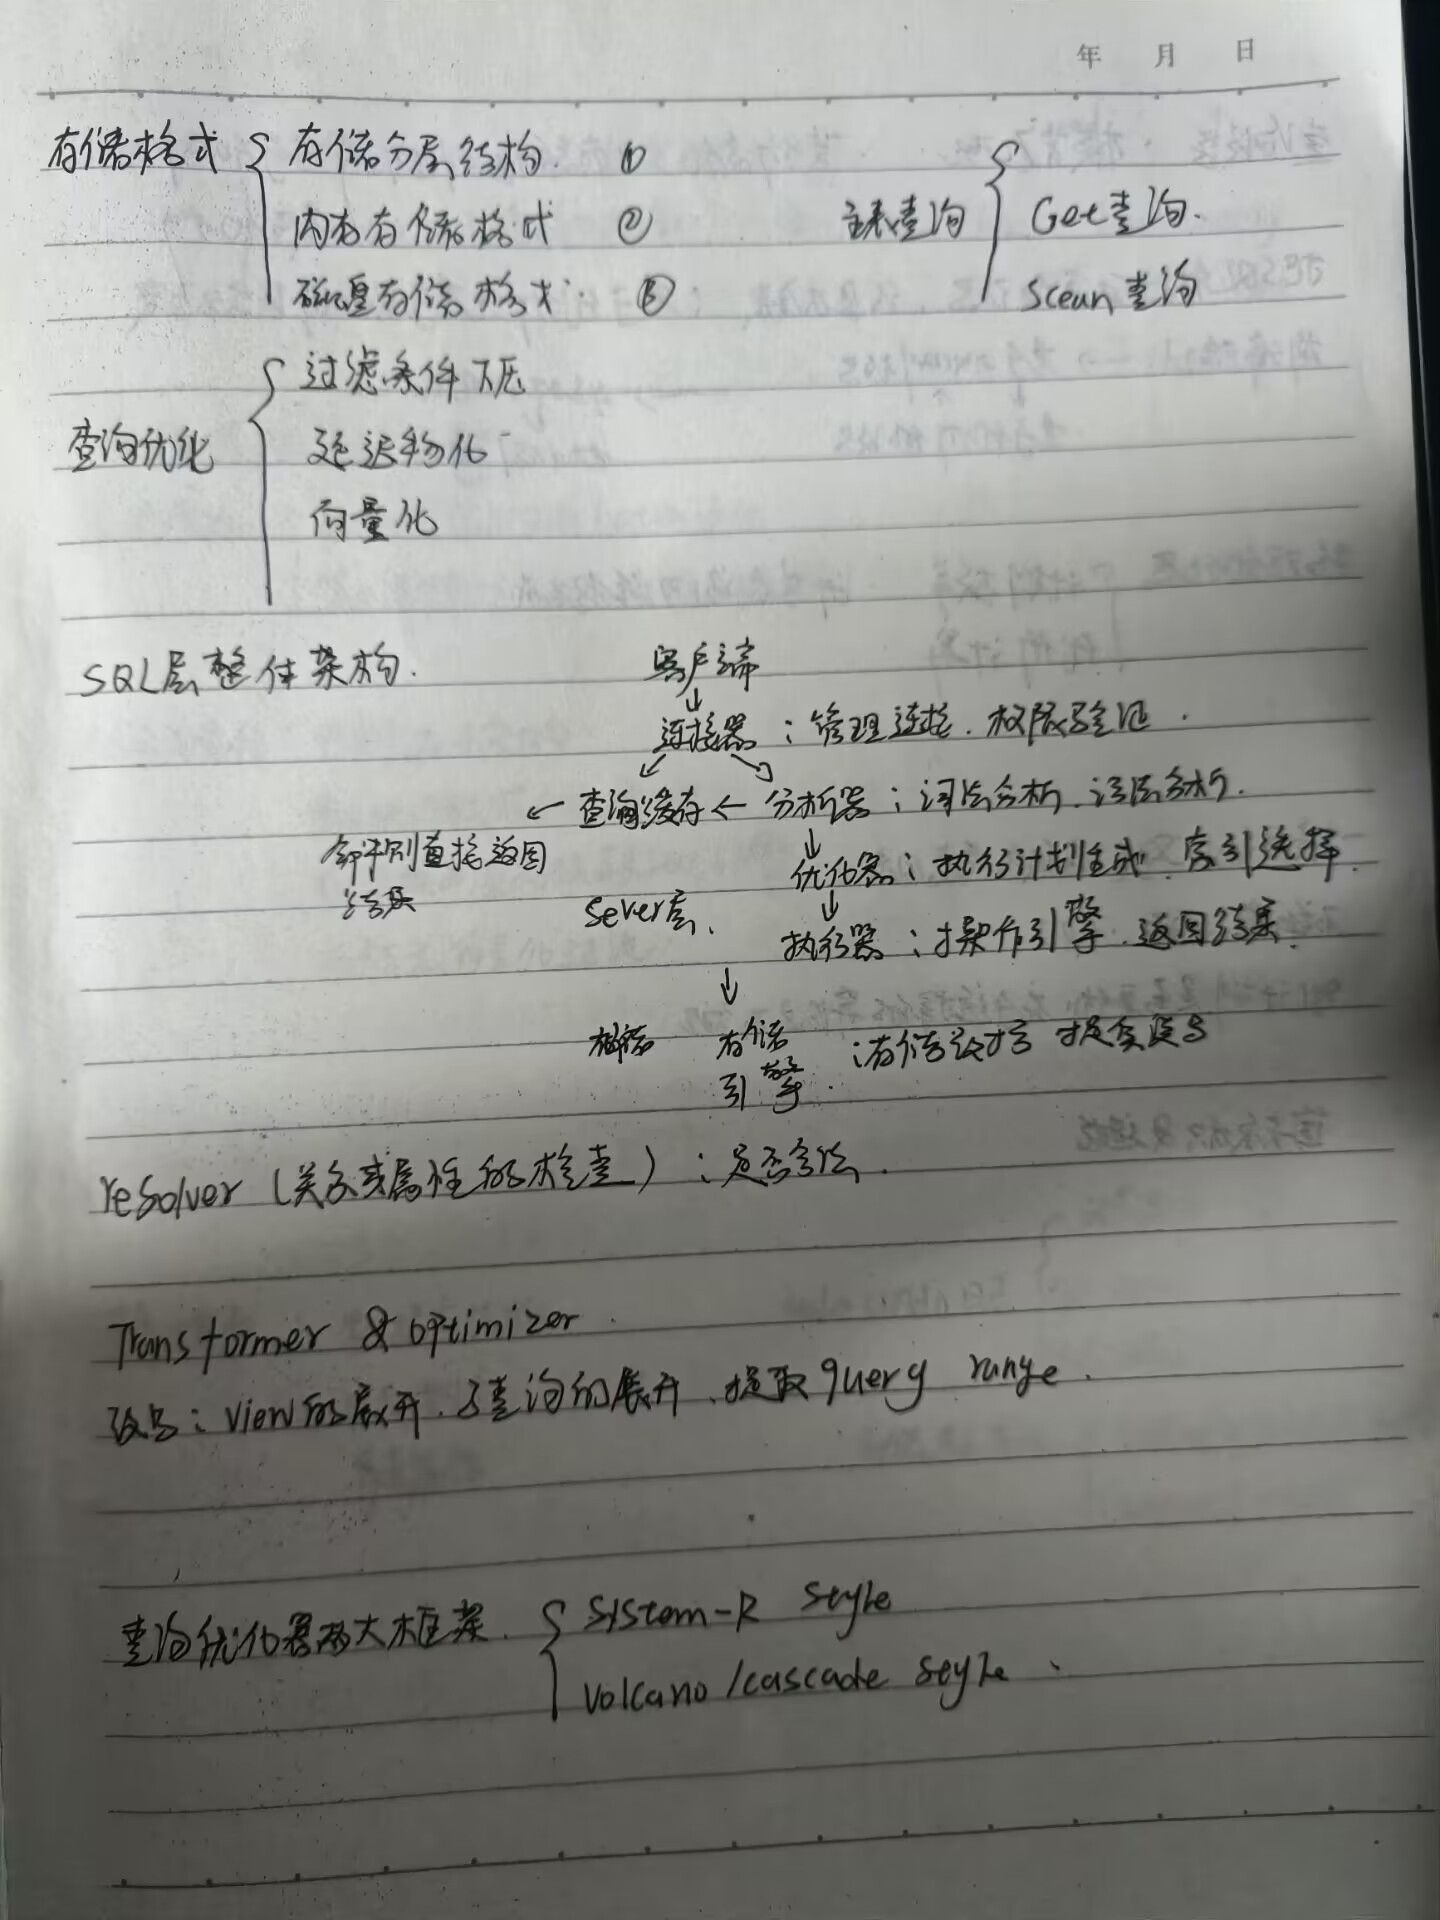 年 月 日
存储格式 { 存储分层结构. ①
内存存储格式 ②
磁盘存储格式. ③
主表查询 { Get查询.
Scean查询
查询优化 { 过滤条件下压
延迟物化
向量化
SQL层整体架构.
客户端
↓
连接器：管理连接、权限验证.
↙ ↘
← 查询缓存 ← 分析器：词法分析、语法分析.
命中则直接返回
结果
↓
优化器：执行计划生成、索引选择.
Sever层、
↓
执行器：操作引擎、返回结果.
↓
存储
引擎. ：存储数据 提供读写
resolver (关系或属性的检查)：是否合法.
Transformer & optimizer.
改写：view的展开、子查询的展开、提取query range.
查询优化器两大框架. { System-R style
Volcano/cascade style、